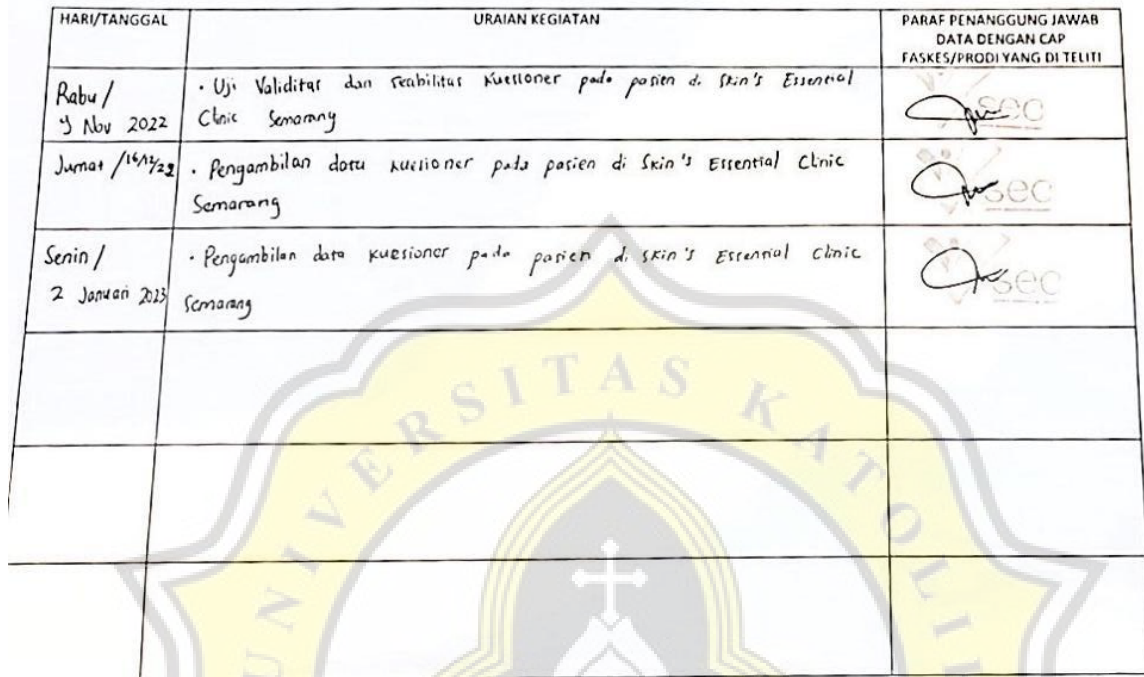 HARI/TANGGAL
URAIAN KEGIATAN
PARAF PENANGGUNG JAWAB
DATA DENGAN CAP
FASKES/PRODI YANG DI TELITI
Rabu /
9 Nov 2022
• Uji Validitas dan reabilitas kuesioner pada pasien di Skin's Essential
Clinic Semarang
sec
Jumat / 16/12/22
• Pengambilan data kuesioner pada pasien di Skin's Essential Clinic
Semarang
sec
Senin /
2 Januari 2023
• Pengambilan data kuesioner pada pasien di Skin's Essential Clinic
Semarang
sec
UNIVERSITAS KATOLI